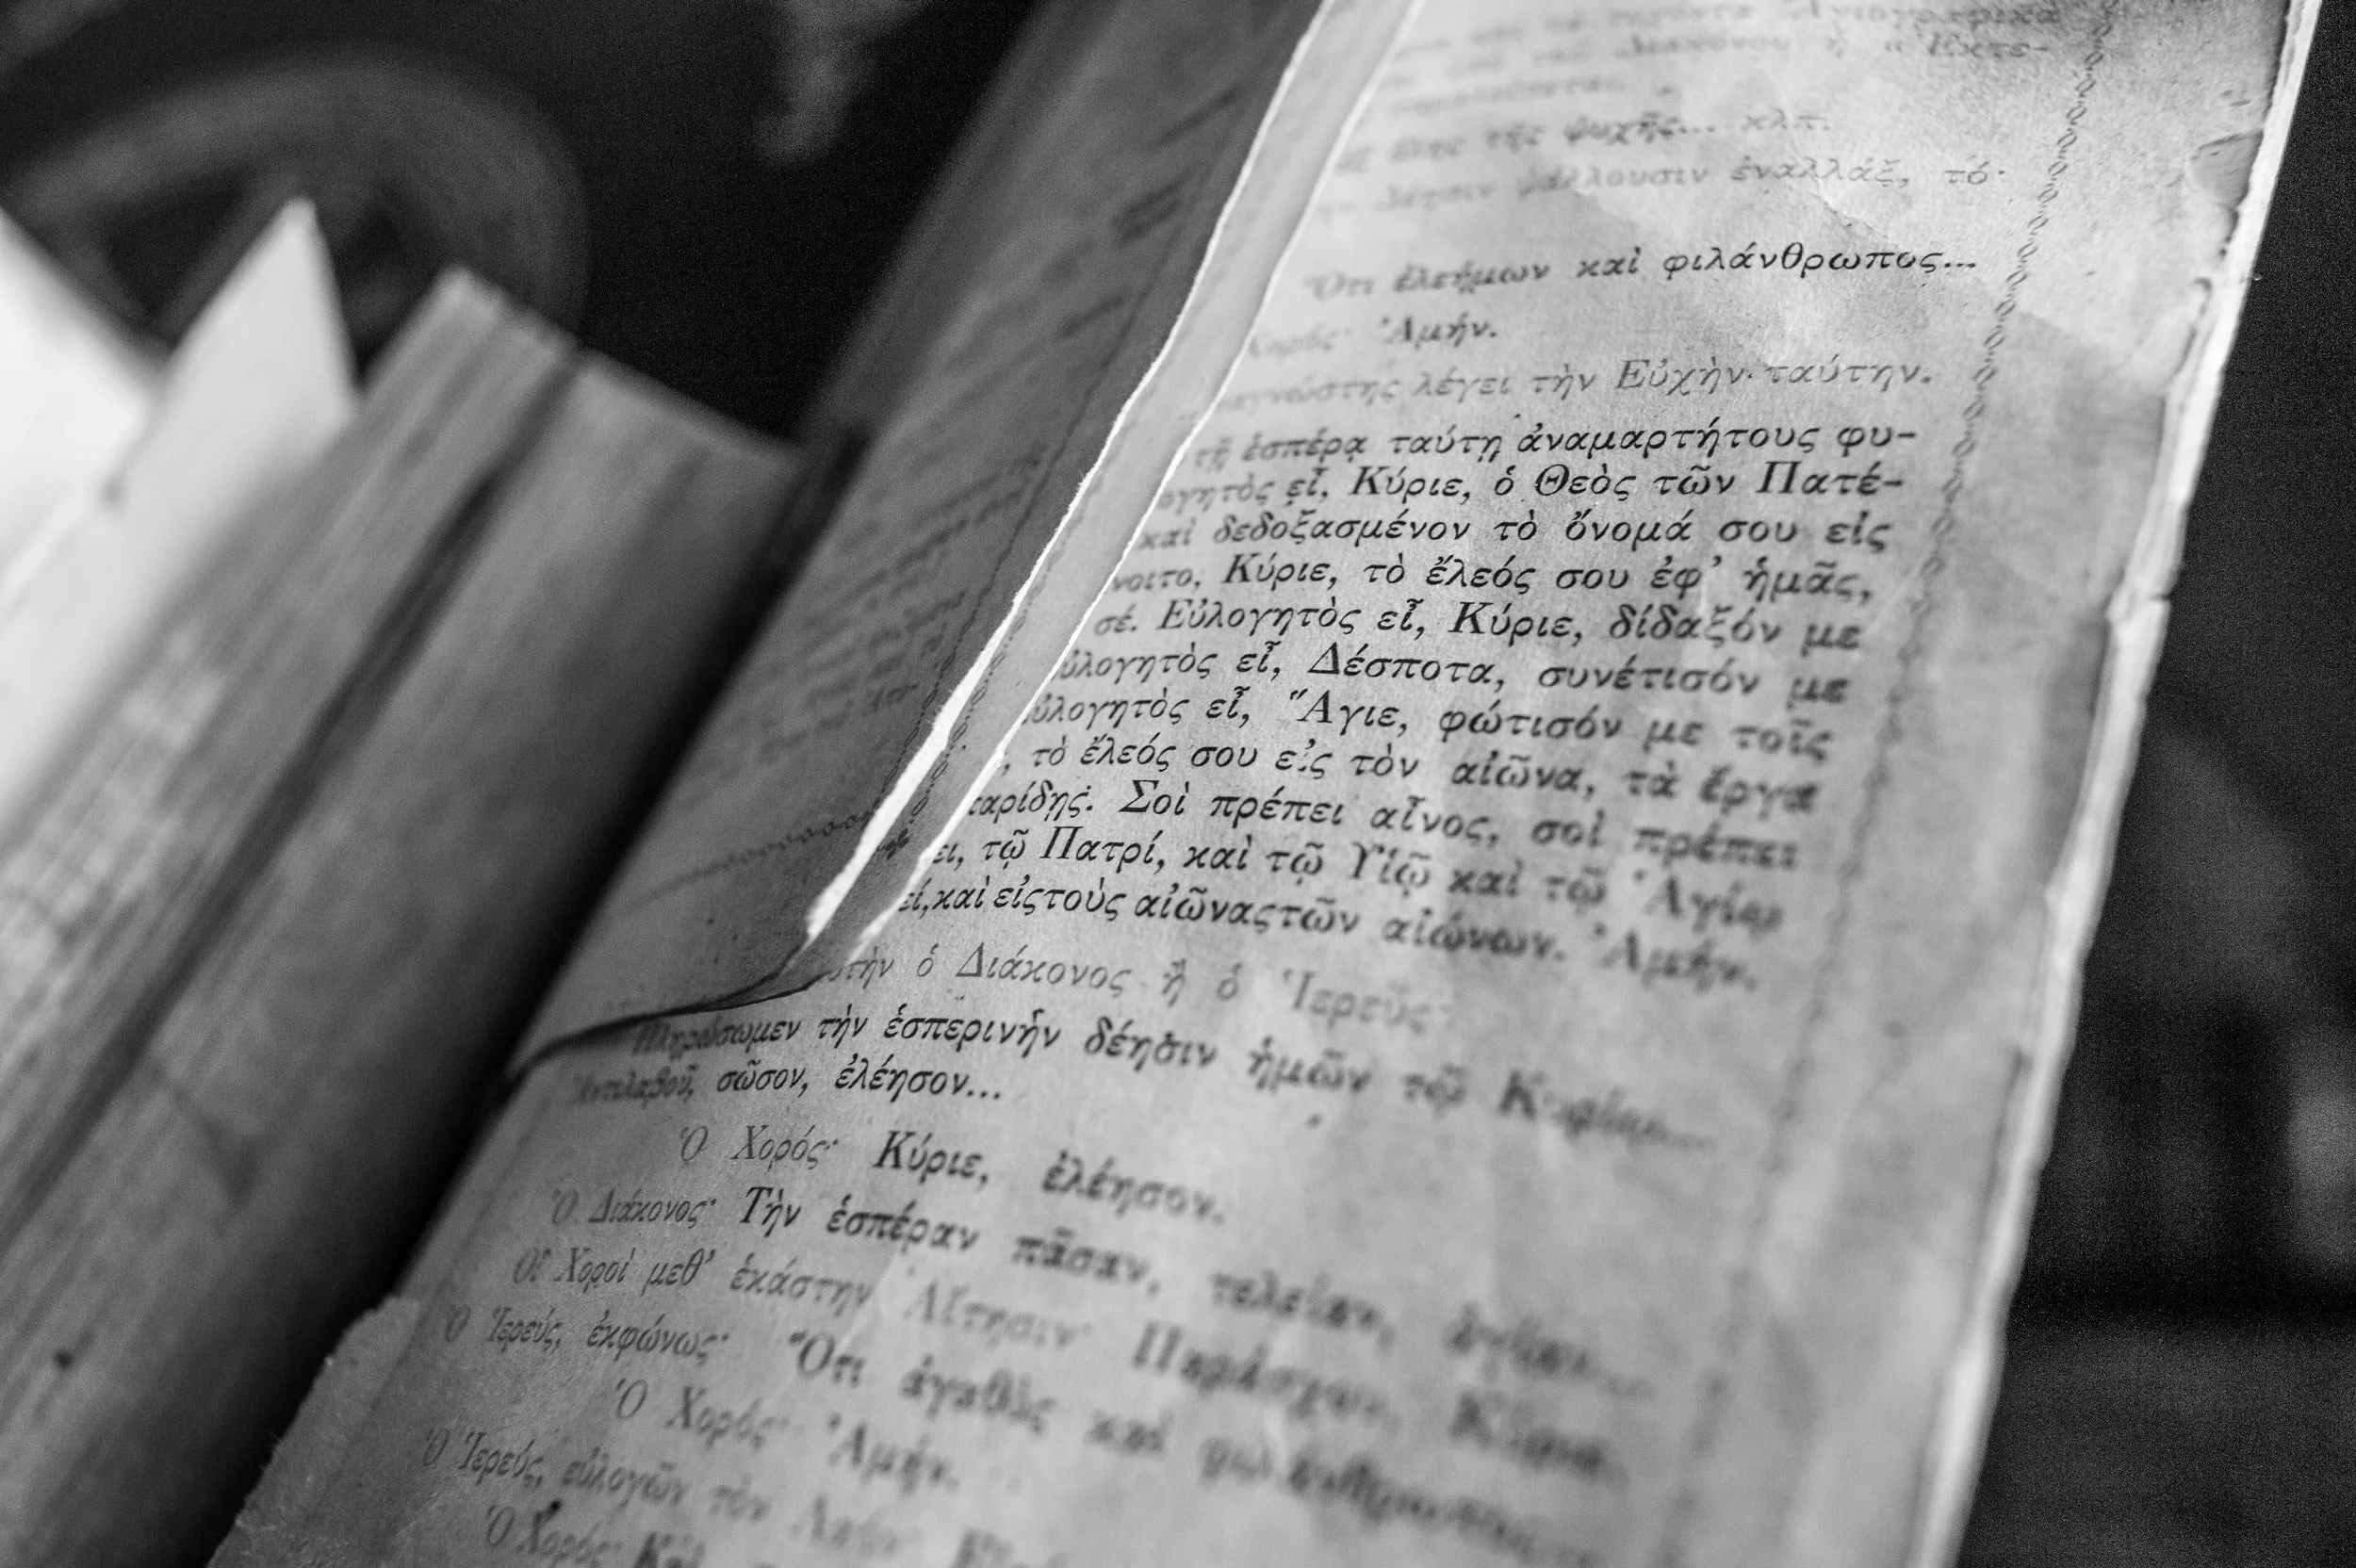 τῆς ψυχῆς... κλπ.
ψάλλουσιν ἐναλλάξ, τό·
Ὅτι ἐλεήμων καὶ φιλάνθρωπος...
Χορός· Ἀμήν.
αγνώστης λέγει τὴν Εὐχὴν· ταύτην.
τῇ ἑσπέρᾳ ταύτῃ ἀναμαρτήτους φυ-
ογητὸς εἶ, Κύριε, ὁ Θεὸς τῶν Πατέ-
καὶ δεδοξασμένον τὸ ὄνομά σου εἰς
νοιτο, Κύριε, τὸ ἔλεός σου ἐφ' ἡμᾶς,
σέ. Εὐλογητὸς εἶ, Κύριε, δίδαξόν με
ὐλογητὸς εἶ, Δέσποτα, συνέτισόν με
ὐλογητὸς εἶ, Ἅγιε, φώτισόν με τοῖς
, τὸ ἔλεός σου εἰς τὸν αἰῶνα, τὰ ἔργα
αρίδῃς. Σοὶ πρέπει αἶνος, σοὶ πρέπει
ει, τῷ Πατρί, καὶ τῷ Υἱῷ καὶ τῷ Ἁγίῳ
εί, καὶ εἰς τοὺς αἰῶνας τῶν αἰώνων. Ἀμήν.
τὴν ὁ Διάκονος ἢ ὁ Ἱερεύς·
Πληρώσωμεν τὴν ἑσπερινὴν δέησιν ἡμῶν τῷ Κυρίῳ...
Ἀντιλαβοῦ, σῶσον, ἐλέησον...
Ὁ Χορός· Κύριε, ἐλέησον.
Ὁ Διάκονος· Τὴν ἑσπέραν πᾶσαν, τελείαν, ἁγίαν...
Οἱ Χοροὶ μεθ' ἑκάστην Αἴτησιν· Παράσχου, Κύριε.
Ὁ Ἱερεύς, ἐκφώνως· Ὅτι ἀγαθὸς καὶ φιλάνθρωπος
Ὁ Χορός· Ἀμήν.
Ὁ Ἱερεύς, εὐλογῶν τὸν Λαόν·
Ὁ Χορός· Καὶ